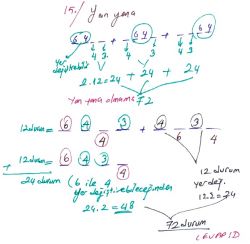 15./ Yan yana
6 4 _ _ + _ 6 4 _ + _ _ 6 4
4 3 4 3 4 3
yer değiştirebilir
2.12=24 + 24 + 24
Yan yana olmama 72
12 durum = 6 4 3 _ + 6 4 _ _
4 6 3 4
12 durum = 6 4 3 _
4
+
24 durum (6 ile 4
yer değiştirebileceğinden
24.2 = 48
12 durum
yer değ.
12.2 = 24
72 durum
CEVAP D